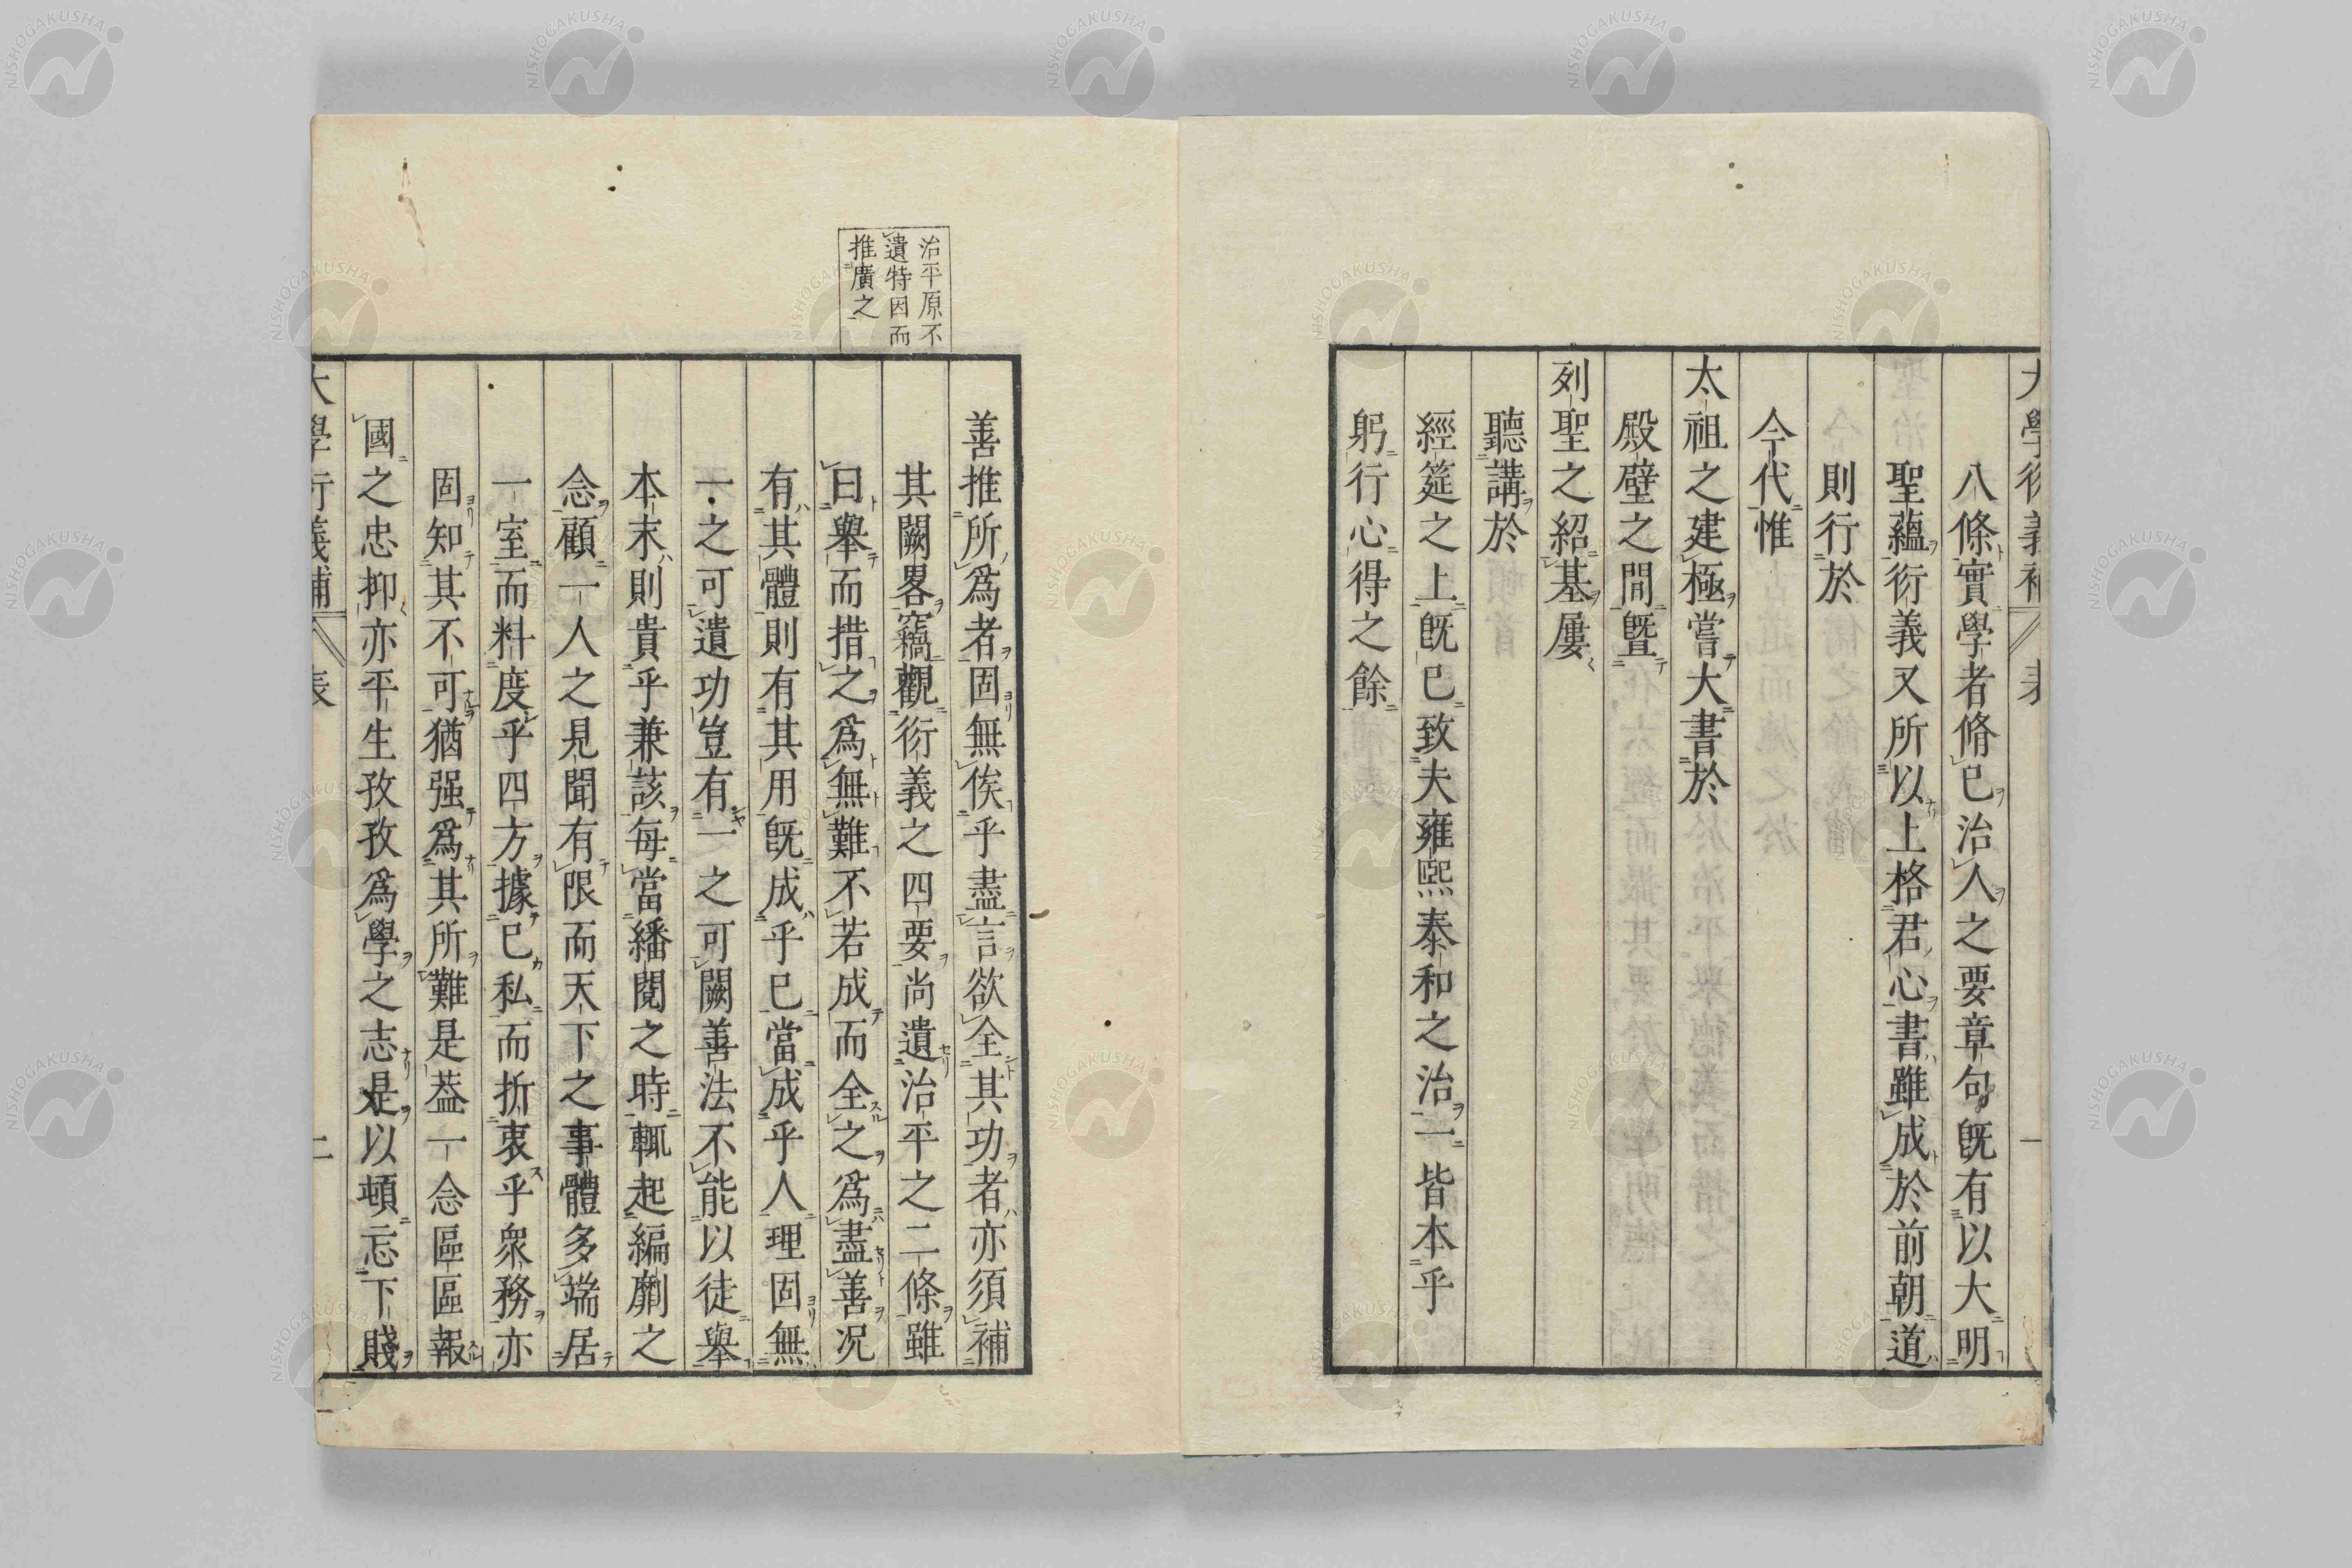 八條實學者脩己治人之要章句既有以大明
聖蘊衍義又所以上格君心書雖成於前朝道
則行於
今代惟
太祖之建極嘗大書於
殿壁之間曁
列聖之紹基屢
聽講於
經筵之上既已致夫雍熙泰和之治一皆本乎
躬行心得之餘
治平原不
遺特因而
推廣之
善推所爲者固無俟乎盡言欲全其功者亦須補
其闕畧竊觀衍義之四要尚遺治平之二條雖
曰舉而措之爲無難不若成而全之爲盡善况
有其體則有其用既成乎已當成乎人理固無
一之可遺功豈有一之可闕善法不能以徒舉
本末則貴乎兼該每當繙閲之時輒起編劘之
念顧一人之見聞有限而天下之事體多端居
一室而料度乎四方據已私而折衷乎衆務亦
固知其不可猶强爲其所難是葢一念區區報
國之忠抑亦平生孜孜爲學之志是以頓忘下賤
大學衍義補 表 二
NISHOGAKUSHA